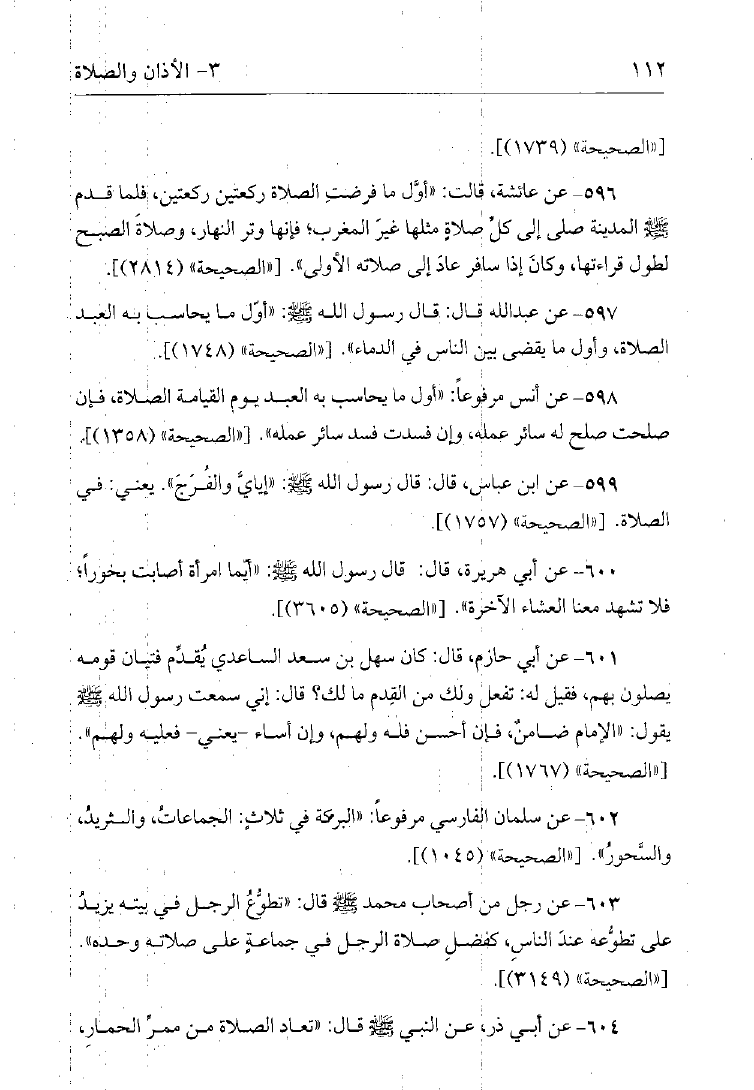 ١١٢ ٣- الأذان والصلاة
[«الصحيحة» (١٧٣٩)].
٥٩٦- عن عائشة، قالت: «أوَّل ما فرضتِ الصلاة ركعتين ركعتين، فلما قدم
ﷺ المدينة صلى إلى كلِّ صلاةٍ مثلها غيرَ المغرب؛ فإنها وتر النهار، وصلاةَ الصبح
لطول قراءتها، وكانَ إذا سافر عادَ إلى صلاته الأولى». [«الصحيحة» (٢٨١٤)].
٥٩٧- عن عبدالله قال: قال رسول الله ﷺ: «أوّل ما يحاسب به العبد
الصلاة، وأول ما يقضى بين الناس في الدماء». [«الصحيحة» (١٧٤٨)].
٥٩٨- عن أنس مرفوعاً: «أول ما يحاسب به العبد يوم القيامة الصلاة، فإن
صلحت صلح له سائر عمله، وإن فسدت فسد سائر عمله». [«الصحيحة» (١٣٥٨)].
٥٩٩- عن ابن عباس، قال: قال رسول الله ﷺ: «إيايَّ والفُرَجَ». يعني: في
الصلاة. [«الصحيحة» (١٧٥٧)].
٦٠٠- عن أبي هريرة، قال: قال رسول الله ﷺ: «أيّما امرأة أصابت بخوراً؛
فلا تشهد معنا العشاء الآخرة». [«الصحيحة» (٣٦٠٥)].
٦٠١- عن أبي حازم، قال: كان سهل بن سعد الساعدي يُقدِّم فتيان قومه
يصلون بهم، فقيل له: تفعل ولك من القِدم ما لك؟ قال: إني سمعت رسول الله ﷺ
يقول: «الإمام ضامنٌ، فإن أحسن فله ولهم، وإن أساء -يعني- فعليه ولهم».
[«الصحيحة» (١٧٦٧)].
٦٠٢- عن سلمان الفارسي مرفوعاً: «البركة في ثلاثٍ: الجماعاتُ، والثريدُ،
والسَّحورُ». [«الصحيحة» (١٠٤٥)].
٦٠٣- عن رجل من أصحاب محمد ﷺ قال: «تطوُّعُ الرجل في بيته يزيدُ
على تطوُّعه عندَ الناسِ، كفضلِ صلاة الرجل في جماعةٍ على صلاته وحده».
[«الصحيحة» (٣١٤٩)].
٦٠٤- عن أبي ذر، عن النبي ﷺ قال: «تعاد الصلاة من ممرِّ الحمارِ،